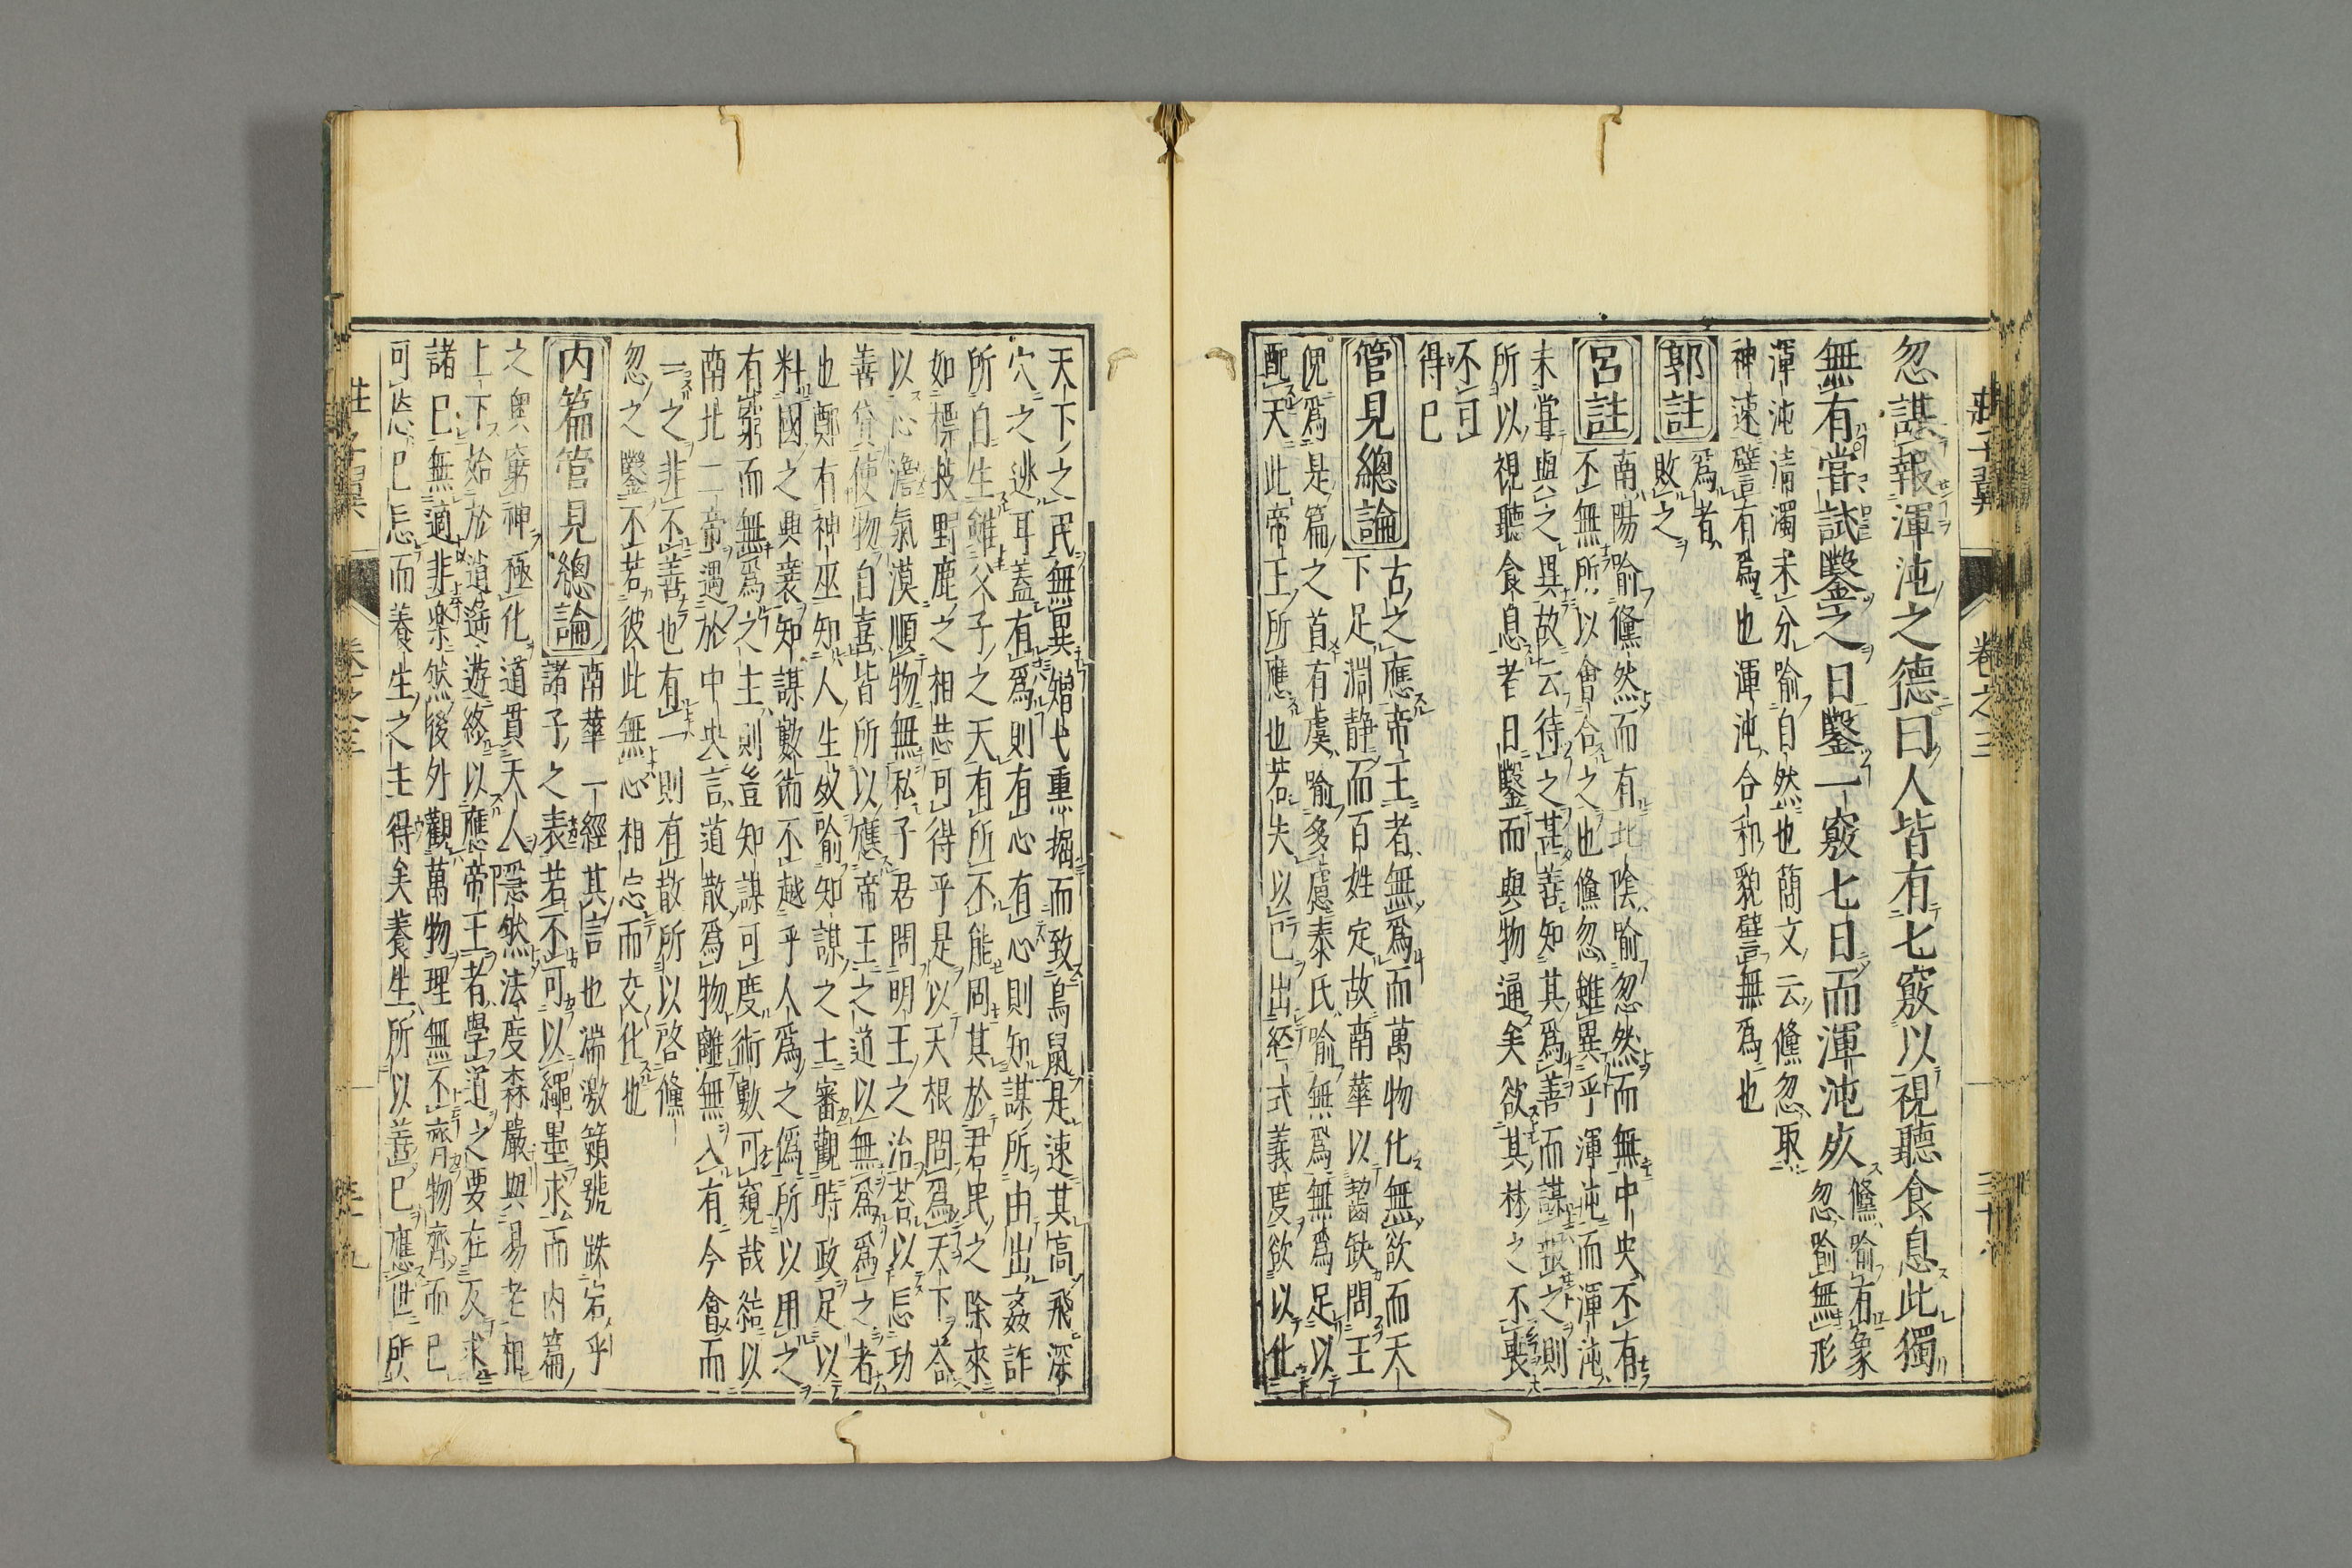 莊子翼
卷之三
忽謀報渾沌之德曰人皆有七竅以視聽食息此獨
無有嘗試鑿之日鑿一竅七日而渾沌死
儵喻有象
忽喻無形
渾沌清濁未分喻自然也簡文云儵忽取
神速譬有爲也渾沌合和貌譬無爲也
郭註
爲者
敗之
呂註
南陽喻儵然而有北陰喻忽然而無中央不有
不無所以會合之也儵忽雖異乎渾沌而渾沌
未嘗與之異故云待之甚善知其爲善而謀報之則
所以視聽食息者日鑿而與物通矣欲其林之不喪
不可
得已
管見總論
古之應帝王者無爲而萬物化無欲而天
下足淵静而百姓定故南華以齧缺問王
倪爲是篇之首有虞喻多慮泰氏喻無爲無爲足以
配天此帝王所應也若夫以己出經式義度欲以化
天下之民無異矰弋重掘而致鳥鼠是速其高飛深
穴之逃耳蓋有爲則有心有心則知謀所由出姦詐
所自生雖父子之天有所不能同其於君民之際來
如標技野鹿之相忘可得乎是以天根問爲天下荅
以心澹氣漠順物無私子君問明王之治荅以忘功
善貸使物自喜皆所以應帝王之道以無爲爲之者
也鄭有神巫知人生死喻知謀之士審觀時政足以
料國之典衰知謀數術不越乎人爲之僞所以用之
有窮而無爲之主則豈知謀可度術數可窺哉結以
南北二帝遇於中央言道散爲物離無入有今會而
一之非不善也有一則有散所以啓儵
忽之鑿不若彼此無心相忘而交化也
内篇管見總論
南華一經其言也湍激籟號跌宕乎
諸子之表若不可以繩墨求而内篇
之奧窮神極化道貫天人隱然法度森嚴與易老相
上下始於逍遥遊終以應帝王者學道之要在反求
諸己無適非樂然後外觀萬物理無不齊物齊而己
可忘己忘而養生之主得矣養生所以善己應世所